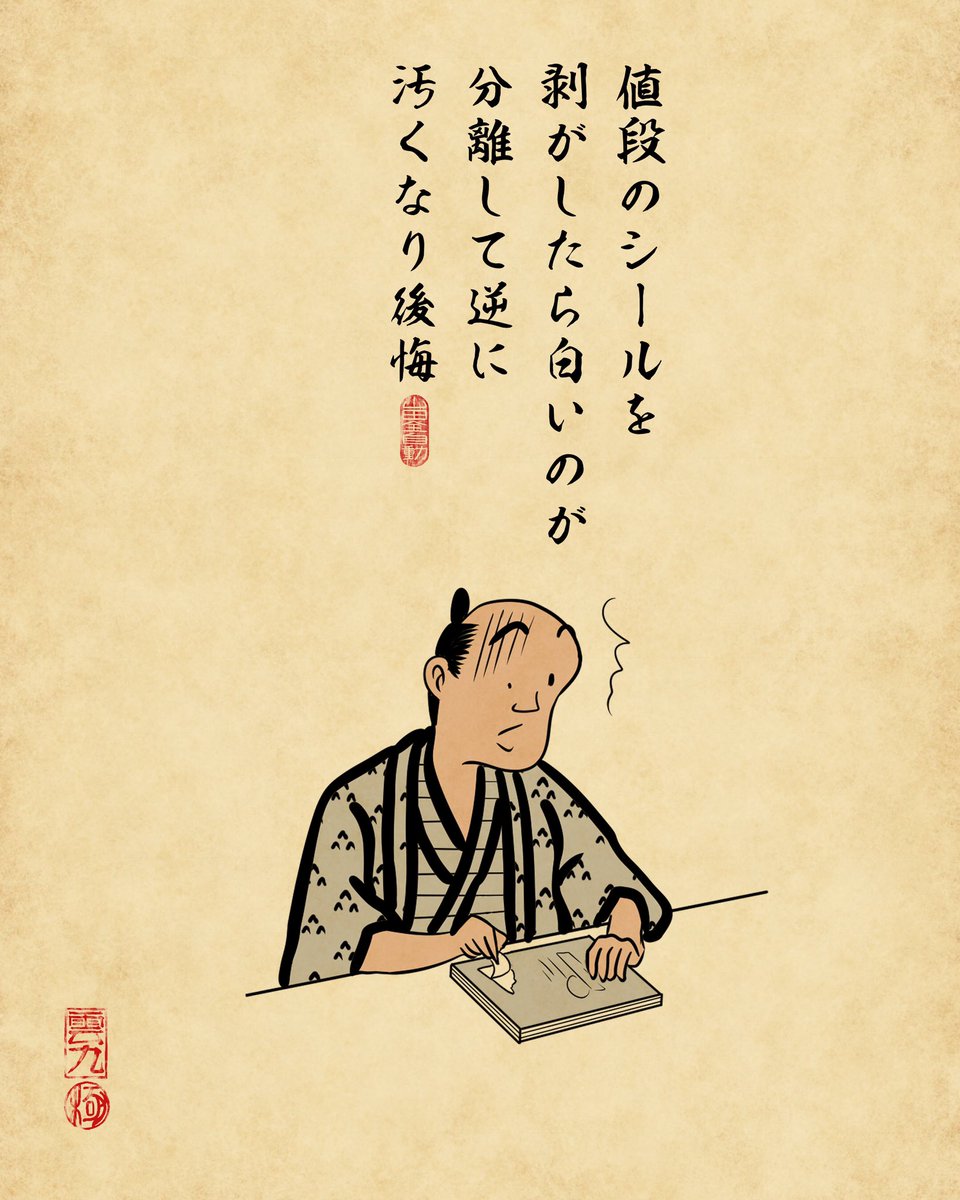 値段のシールを
剥がしたら白いのが
分離して逆に
汚くなり後悔